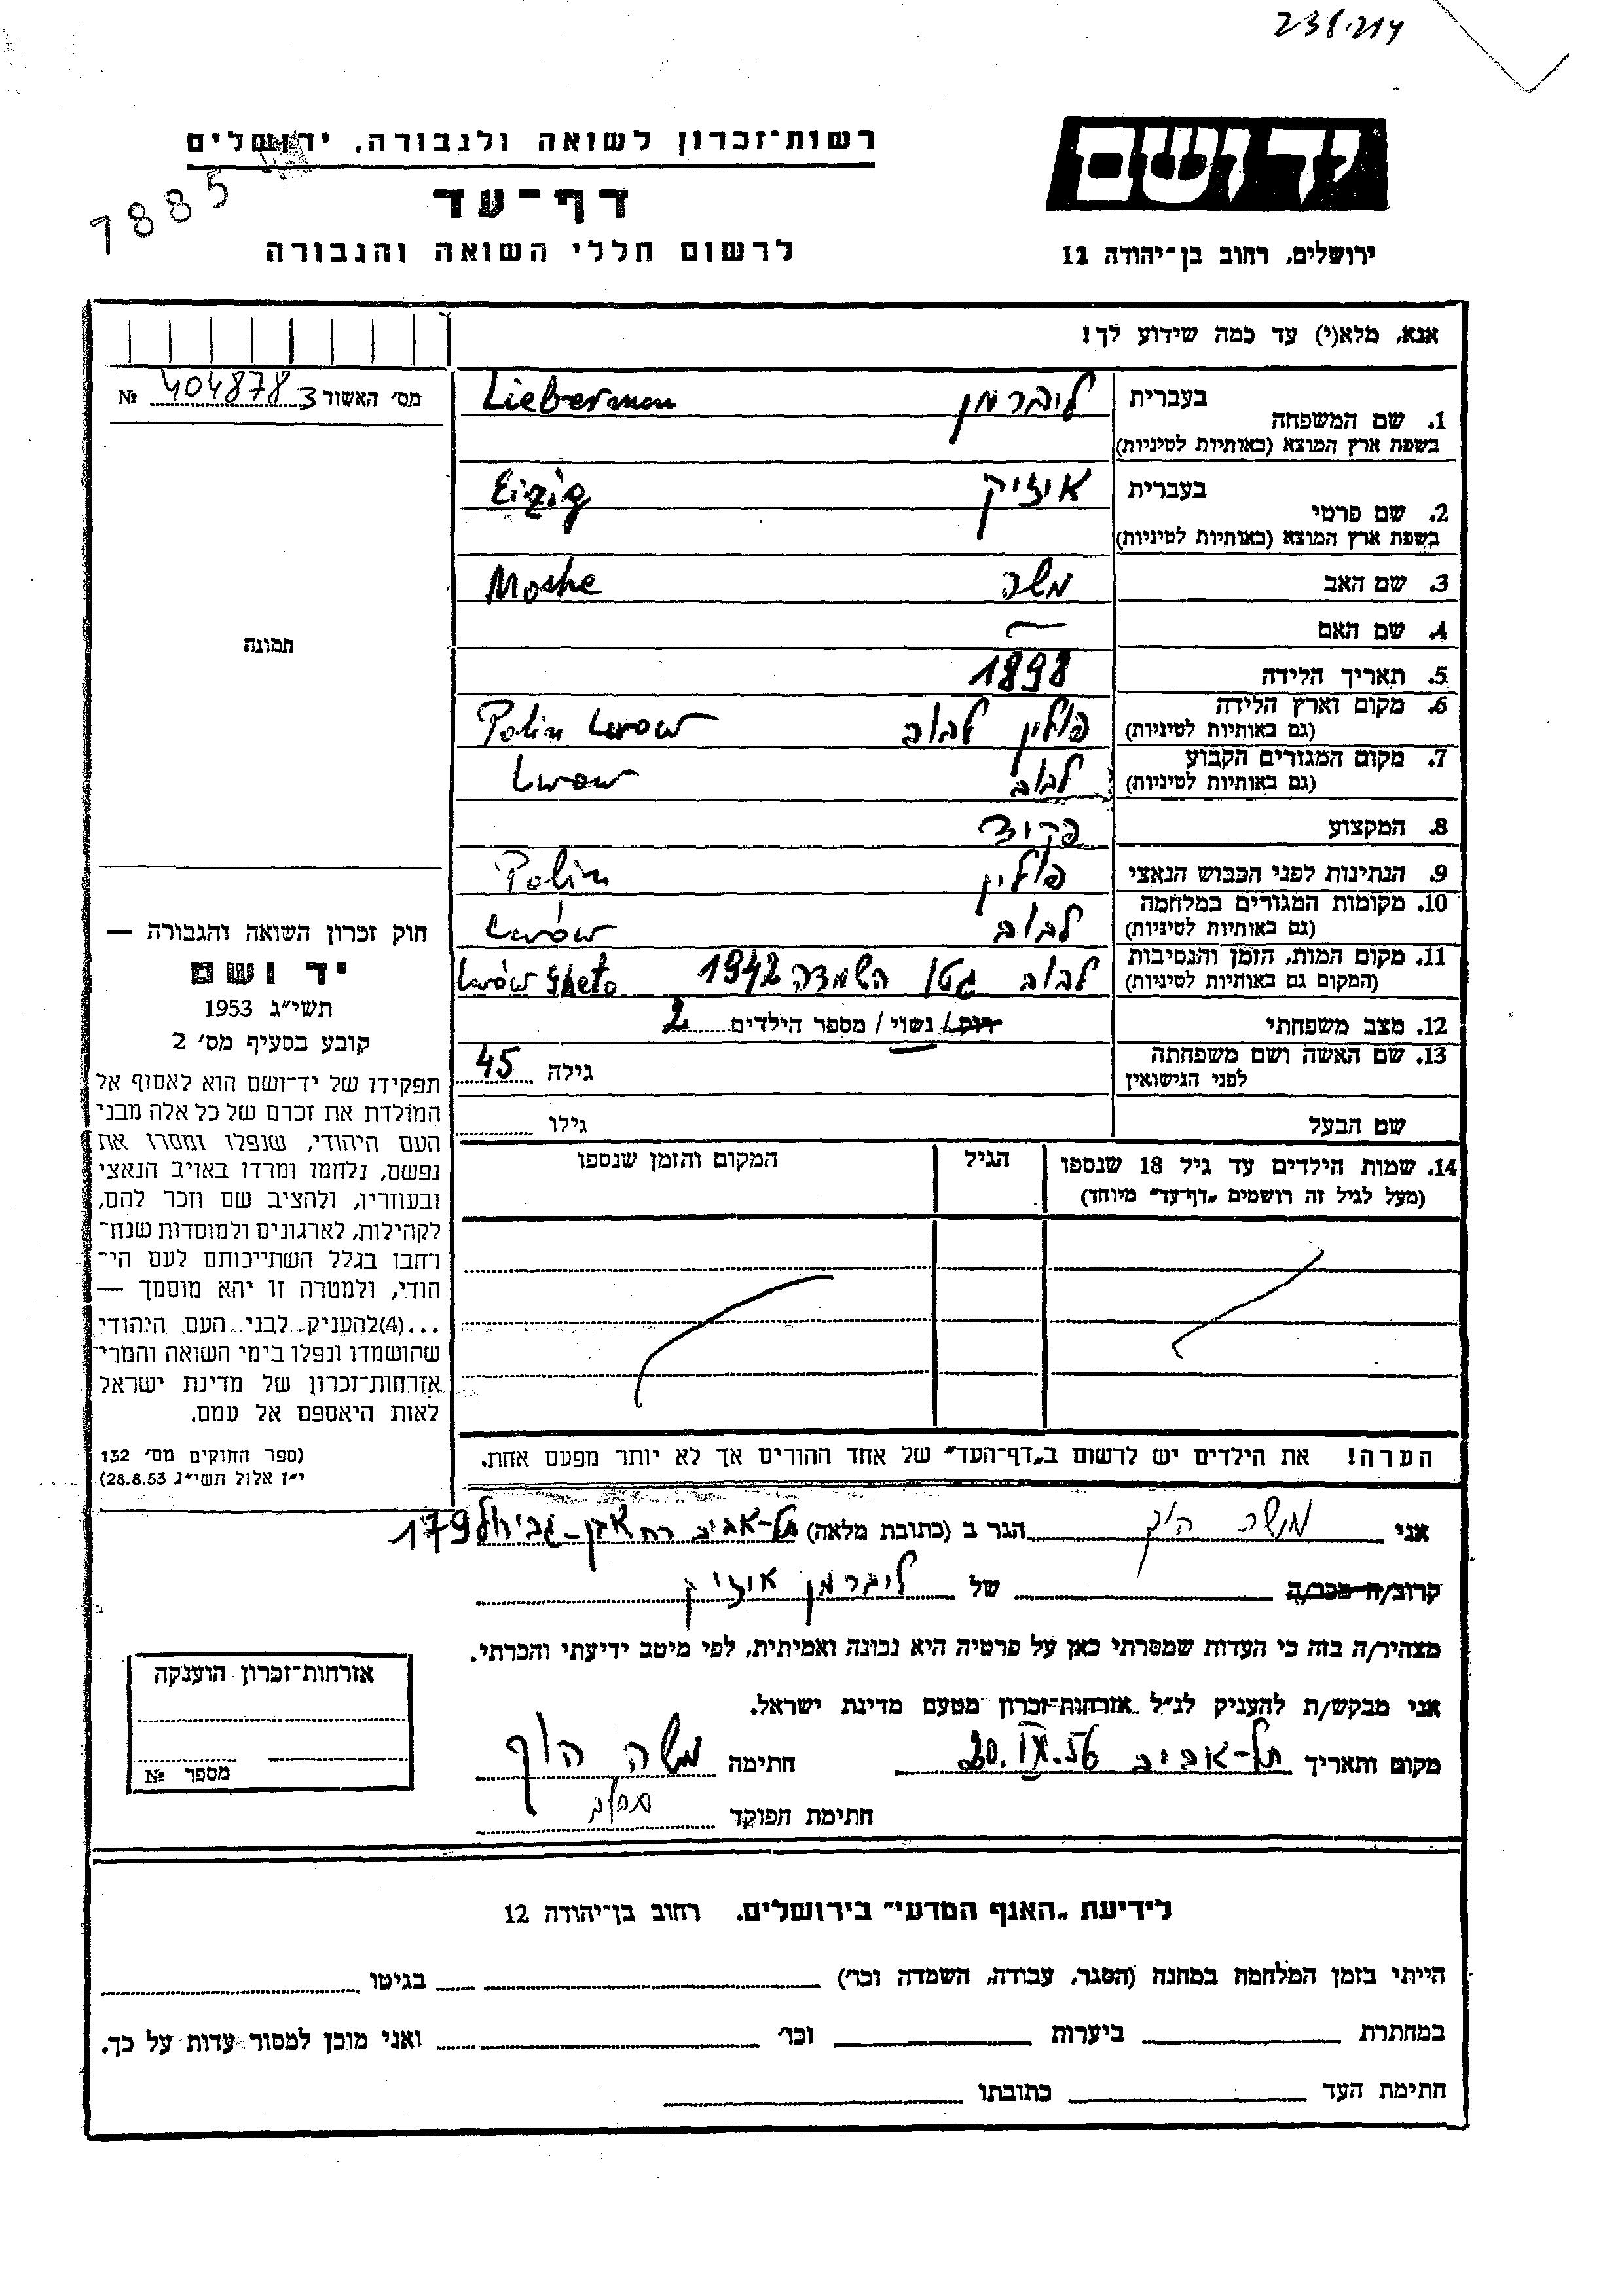 238.214
רשות־זכרון לשואה ולגבורה, ירושלים
יד ושם
דף־עד
7885
לרשום חללי השואה והגבורה
ירושלים, רחוב בן־יהודה 12
אנא, מלא(י) עד כמה שידוע לך!
מס׳ האשור 3 404878 №
תמונה
1. שם המשפחה
בעברית ליברמן
בשפת ארץ המוצא (באותיות לטיניות) Lieberman
2. שם פרטי
בעברית איזיק
בשפת ארץ המוצא (באותיות לטיניות) Eizig
3. שם האב משה Moshe
4. שם האם —
5. תאריך הלידה 1898
6. מקום וארץ הלידה פולין לבוב Polin Lwow
(גם באותיות לטיניות)
7. מקום המגורים הקבוע לבוב Lwow
(גם באותיות לטיניות)
8. המקצוע פקיד
9. הנתינות לפני הכבוש הנאצי פולין Polin
10. מקומות המגורים במלחמה לבוב Lwów
(גם באותיות לטיניות)
11. מקום המות, הזמן והנסיבות לבוב גטו השמדה 1942 Lwów Gheto
(המקום גם באותיות לטיניות)
12. מצב משפחתי רווק/ נשוי / מספר הילדים 2
13. שם האשה ושם משפחתה גילה 45
לפני הנישואין
שם הבעל גילו
14. שמות הילדים עד גיל 18 שנספו הגיל המקום והזמן שנספו
(מעל לגיל זה רושמים „דף־עד״ מיוחד)
הערה! את הילדים יש לרשום ב„דף־העד״ של אחד ההורים אך לא יותר מפעם אחת.
חוק זכרון השואה והגבורה —
יד ושם
תשי״ג 1953
קובע בסעיף מס׳ 2
תפקידו של יד־ושם הוא לאסוף אל
המולדת את זכרם של כל אלה מבני
העם היהודי, שנפלו ומסרו את
נפשם, נלחמו ומרדו באויב הנאצי
ובעוזריו, ולהציב שם וזכר להם,
לקהילות, לארגונים ולמוסדות שנח־
רחבו בגלל השתייכותם לעם הי־
הודי, ולמטרה זו יהא מוסמך —
...(4)להעניק לבני העם היהודי
שהושמדו ונפלו בימי השואה והמרי
אזרחות־זכרון של מדינת ישראל
לאות היאספם אל עמם.
(ספר החוקים מס׳ 132
י״ז אלול תשי״ג 28.8.53)
אני משה הגר ב (כתובת מלאה) תל־אביב רח אבן־גבירול 179
קרוב/ה מכר/ה של ליברמן איזיק
מצהיר/ה בזה כי העדות שמסרתי כאן על פרטיה היא נכונה ואמיתית, לפי מיטב ידיעתי והכרתי.
אני מבקש/ת להעניק לנ״ל אזרחות־זכרון מטעם מדינת ישראל.
מקום ותאריך תל־אביב 20.IX.56 חתימה משה הוף
חתימת הפוקד
אזרחות־זכרון הוענקה
מספר №
לידיעת „האגף המדעי״ בירושלים. רחוב בן־יהודה 12
הייתי בזמן המלחמה במחנה (הסגר, עבודה, השמדה וכו׳) בגיטו
במחתרת ביערות וכו׳ ואני מוכן למסור עדות על כך.
חתימת העד כתובתו